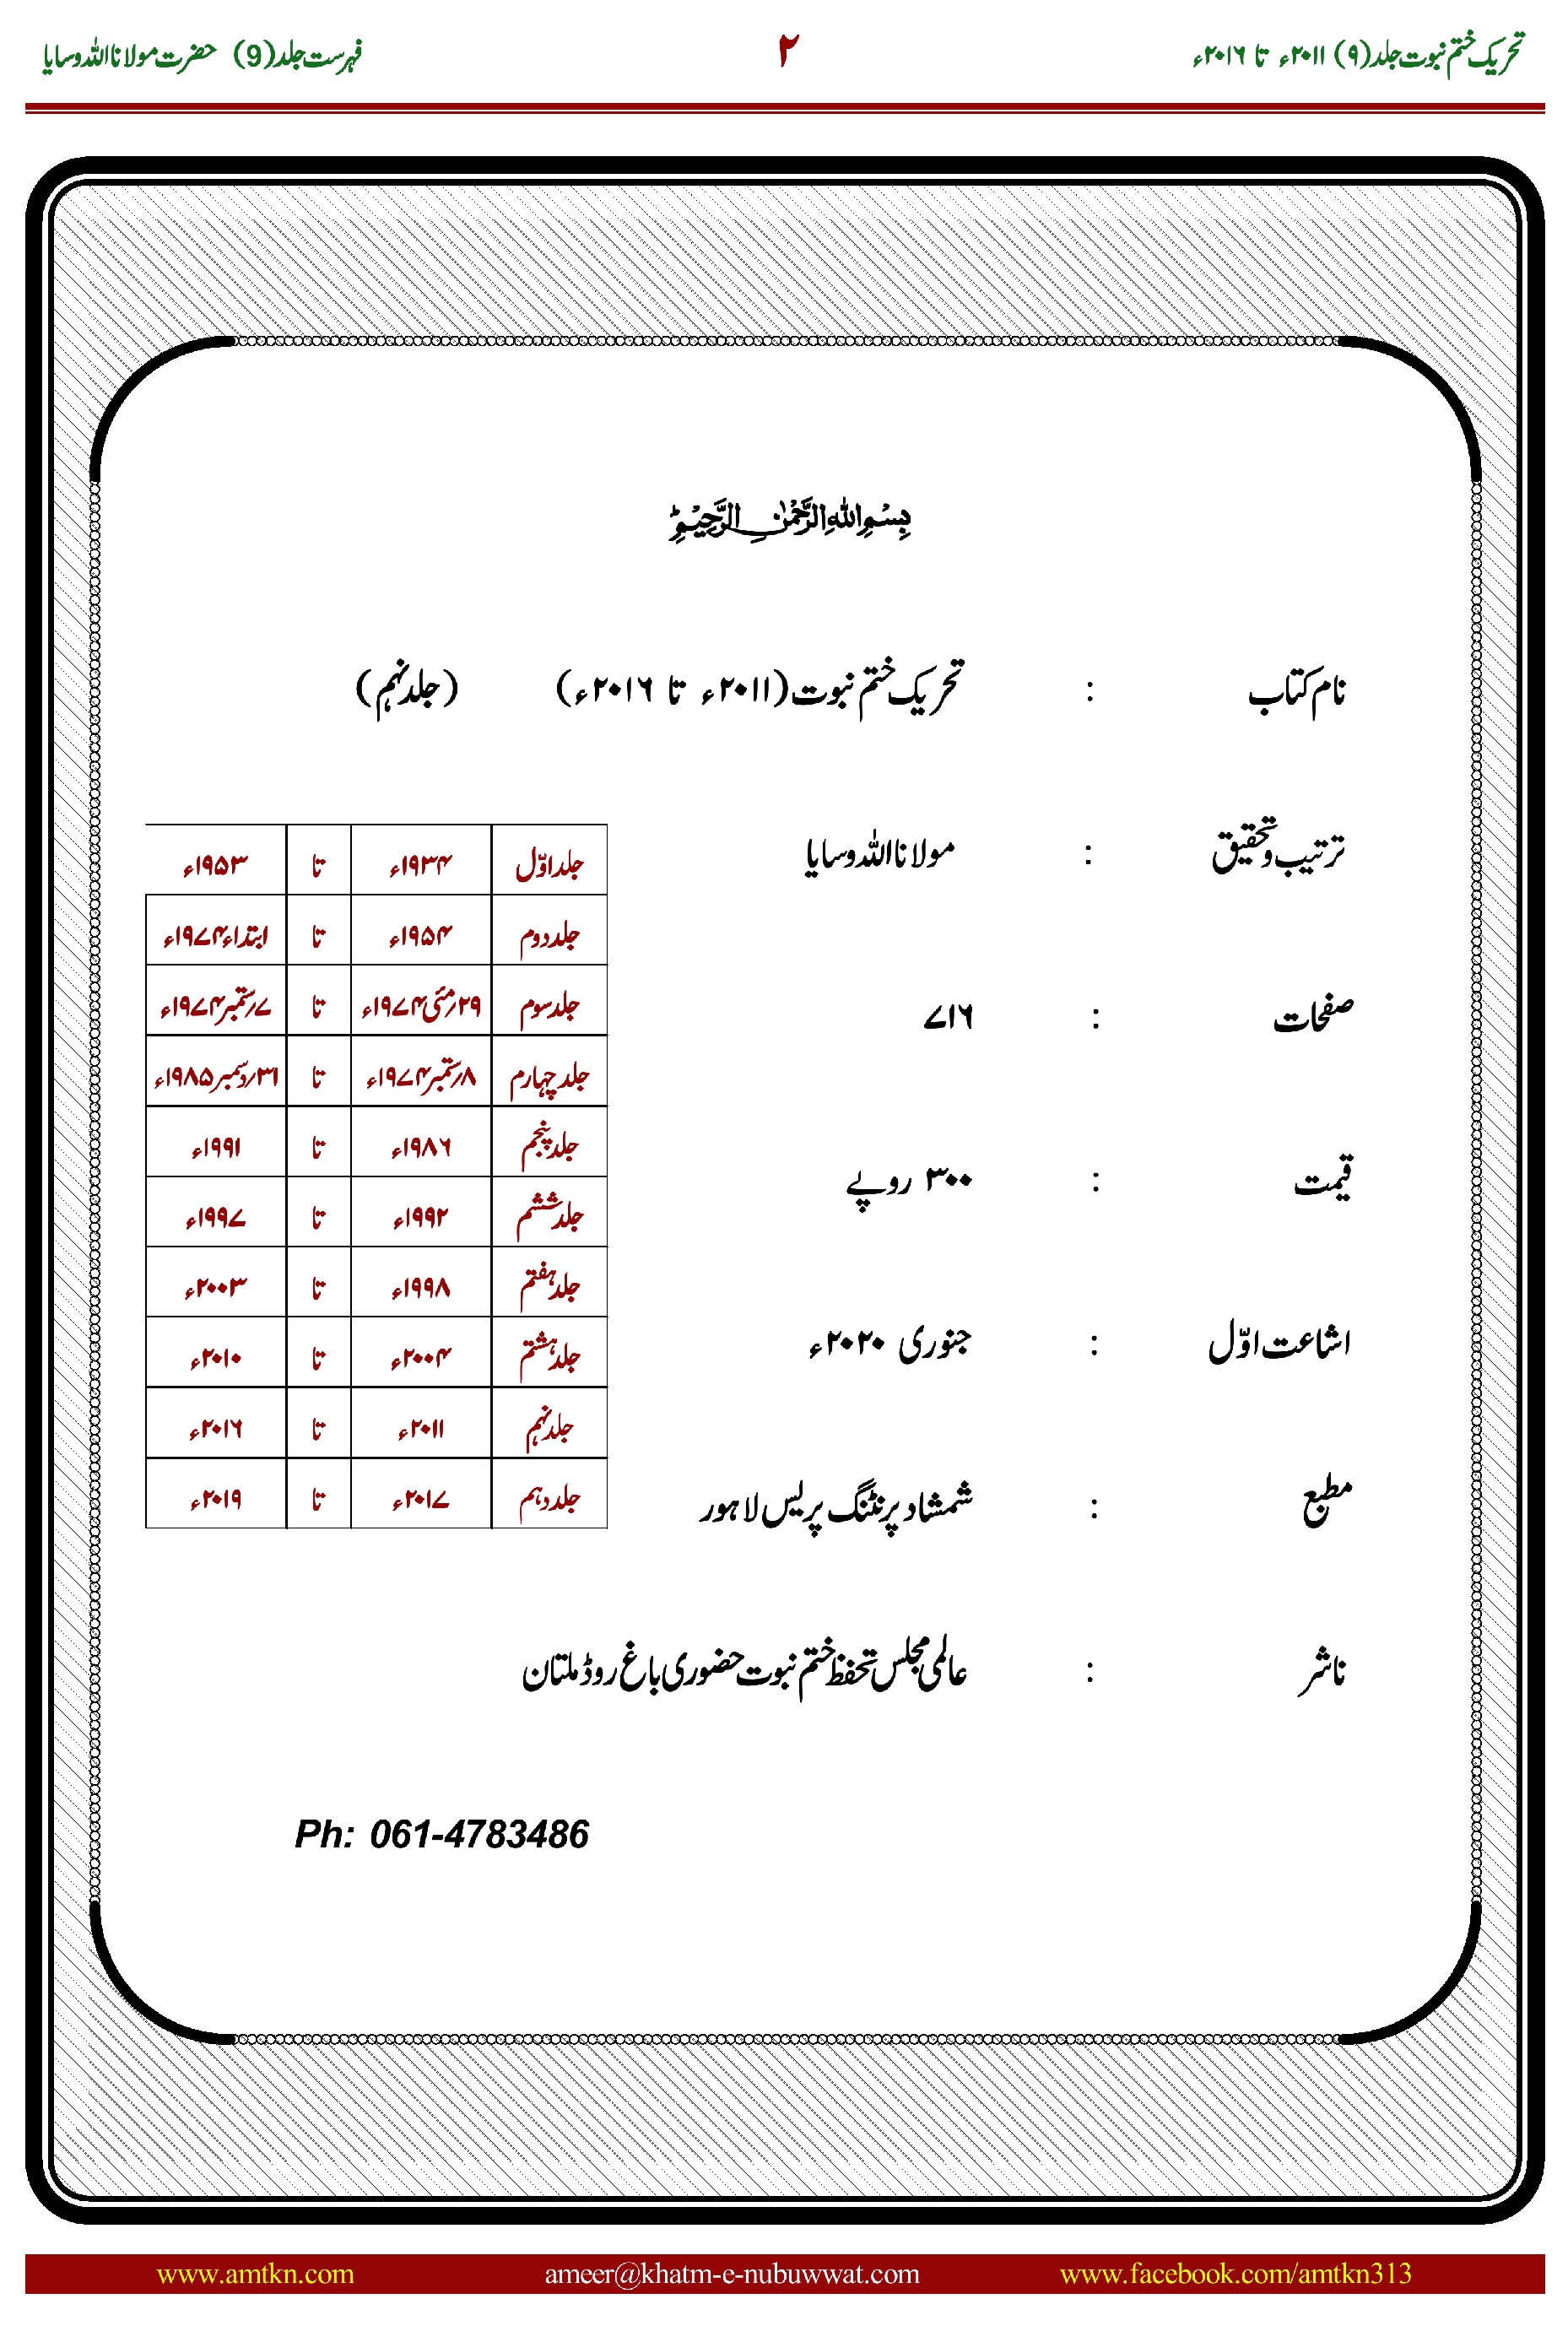 تحریک ختم نبوت جلد (۹) ۲۰۱۱ء تا ۲۰۱۶ء ۲ فہرست جلد (9) حضرت مولانا اللہ وسایا
بِسْمِ اللهِ الرَّحْمٰنِ الرَّحِيْمِ
نام کتاب : تحریک ختم نبوت (۲۰۱۱ء تا ۲۰۱۶ء) (جلد نہم)
ترتیب و تحقیق : مولانا اللہ وسایا
صفحات : ۷۱۶
قیمت : ۳۰۰ روپے
اشاعت اوّل : جنوری ۲۰۲۰ء
مطبع : شمشاد پرنٹنگ پریس لاہور
ناشر : عالمی مجلس تحفظ ختم نبوت حضوری باغ روڈ ملتان
جلد اوّل ۱۹۳۴ء تا ۱۹۵۳ء
جلد دوم ۱۹۵۴ء تا ابتداء ۱۹۷۴ء
جلد سوم ۲۹؍مئی ۱۹۷۴ء تا ۷؍ستمبر ۱۹۷۴ء
جلد چہارم ۸؍ستمبر ۱۹۷۴ء تا ۳۱؍دسمبر ۱۹۸۵ء
جلد پنجم ۱۹۸۶ء تا ۱۹۹۱ء
جلد ششم ۱۹۹۲ء تا ۱۹۹۷ء
جلد ہفتم ۱۹۹۸ء تا ۲۰۰۳ء
جلد ہشتم ۲۰۰۴ء تا ۲۰۱۰ء
جلد نہم ۲۰۱۱ء تا ۲۰۱۶ء
جلد دہم ۲۰۱۷ء تا ۲۰۱۹ء
Ph: 061-4783486
www.amtkn.com ameer@khatm-e-nubuwwat.com www.facebook.com/amtkn313